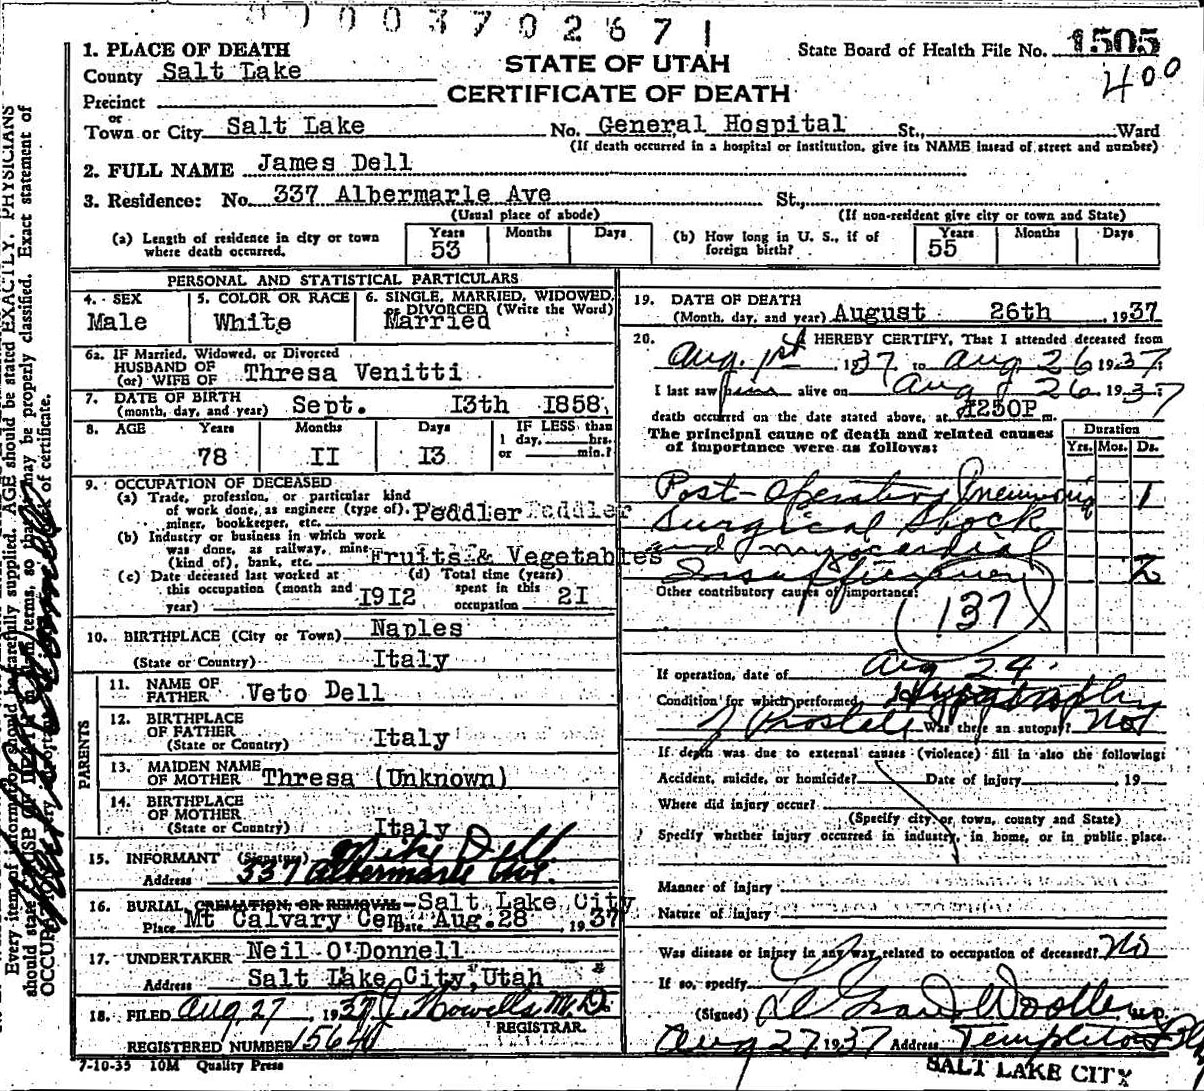 0 0 0 3 7 0 2 6 7 1
State Board of Health File No. 1505
400
STATE OF UTAH
CERTIFICATE OF DEATH
1. PLACE OF DEATH
County Salt Lake
Precinct
or
Town or City Salt Lake No. General Hospital St., Ward
(If death occurred in a hospital or institution, give its NAME instead of street and number)
2. FULL NAME James Dell
3. Residence: No. 337 Albermarle Ave St.,
(Usual place of abode) (If non-resident give city or town and State)
(a) Length of residence in city or town where death occurred. Years 53 Months Days
(b) How long in U. S., if of foreign birth? Years 55 Months Days
PERSONAL AND STATISTICAL PARTICULARS
4. SEX Male
5. COLOR OR RACE White
6. SINGLE, MARRIED, WIDOWED, or DIVORCED (Write the Word) Married
6a. IF Married, Widowed, or Divorced
HUSBAND OF
(or) WIFE OF Thresa Venitti
7. DATE OF BIRTH
(month, day, and year) Sept. 13th 1858
8. AGE Years 78 Months II Days I3 IF LESS than 1 day, hrs. or min.?
9. OCCUPATION OF DECEASED
(a) Trade, profession, or particular kind
of work done, as engineer (type of), Peddler Peddler
miner, bookkeeper, etc.
(b) Industry or business in which work
was done, as railway, mine Fruits & Vegetables
(kind of), bank, etc.
(c) Date deceased last worked at
this occupation (month and
year) I9I2
(d) Total time (years)
spent in this
occupation 2I
10. BIRTHPLACE (City or Town) Naples
(State or Country) Italy
PARENTS
11. NAME OF
FATHER Veto Dell
12. BIRTHPLACE
OF FATHER
(State or Country) Italy
13. MAIDEN NAME
OF MOTHER Thresa (Unknown)
14. BIRTHPLACE
OF MOTHER
(State or Country) Italy
15. INFORMANT (Signature) Mike Dell
Address 337 Albermarle Ave.
16. BURIAL, CREMATION, OR REMOVAL Salt Lake City
Place Mt Calvary Cem Date Aug. 28, 1937
17. UNDERTAKER Neil O'Donnell
Address Salt Lake City, Utah
18. FILED Aug 27, 1937 J. Howells M.D.
REGISTRAR.
REGISTERED NUMBER 1564
7-10-35 10M Quality Press
19. DATE OF DEATH
(Month, day, and year) August 26th, 1937
20. I HEREBY CERTIFY, That I attended deceased from
Aug. 1st 1937 to Aug 26 1937
I last saw him alive on Aug 26 1937
death occurred on the date stated above, at 1250P m.
The principal cause of death and related causes
of importance were as follows:
Duration
Yrs. Mos. Ds.
Post-Operative Pneumonia 1
Surgical Shock
and myocardial
Insufficiency 2
Other contributory causes of importance:
137
If operation, date of Aug 24.
Condition for which performed Hypertrophy
of Prostate Was there an autopsy? No
If death was due to external causes (violence) fill in also the following:
Accident, suicide, or homicide? Date of injury 19
Where did injury occur?
(Specify city or town, county and State)
Specify whether injury occurred in industry, in home, or in public place.
Manner of injury
Nature of injury
Was disease or injury in any way related to occupation of deceased? No
If so, specify
(Signed) Woolley M.D.
Aug 27 1937 Address Templeton Bldg
SALT LAKE CITY
Every item of information should be carefully supplied. AGE should be stated EXACTLY. PHYSICIANS
should state CAUSE OF DEATH in plain terms, so that it may be properly classified. Exact statement of
OCCUPATION is very important. back of certificate.